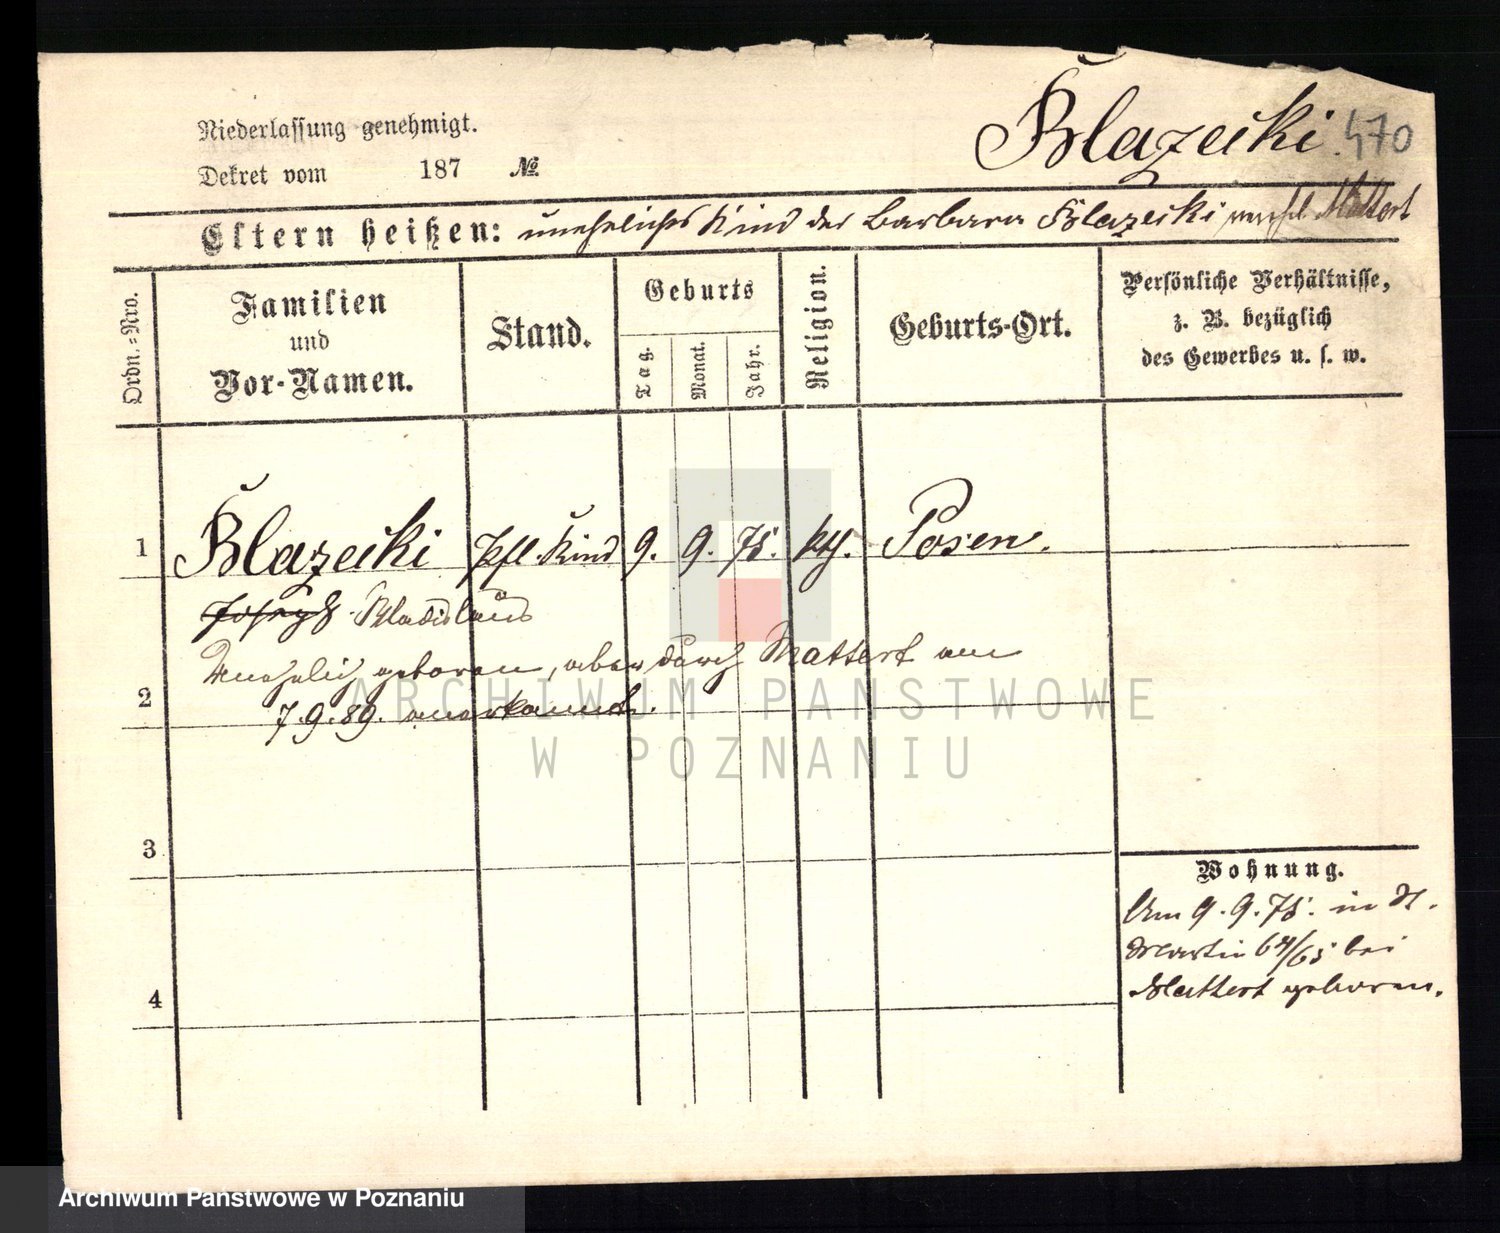 Niederlassung genehmigt.
Dekret vom 187 №
Blazecki 470
Eltern heißen: uneheliches Kind der Barbara Blazecki Mattert
Ordn.-Nro.
Familien
und
Vor-Namen.
Stand.
Geburts
Tag.
Monat.
Jahr.
Religion.
Geburts-Ort.
Persönliche Verhältnisse,
z. B. bezüglich
des Gewerbes u. s. w.
1 Blazecki Pfl. Kind 9. 9. 75. kth. Posen.
Joseph Wladislaus
Unehelich geboren, aber durch Mattert am
2 7.9.89. anerkannt.
3
4
Wohnung.
Am 9.9.75. in St.
Martin 64/65 bei
Mattert geboren.
ARCHIWUM PAŃSTWOWE
W POZNANIU
Archiwum Państwowe w Poznaniu